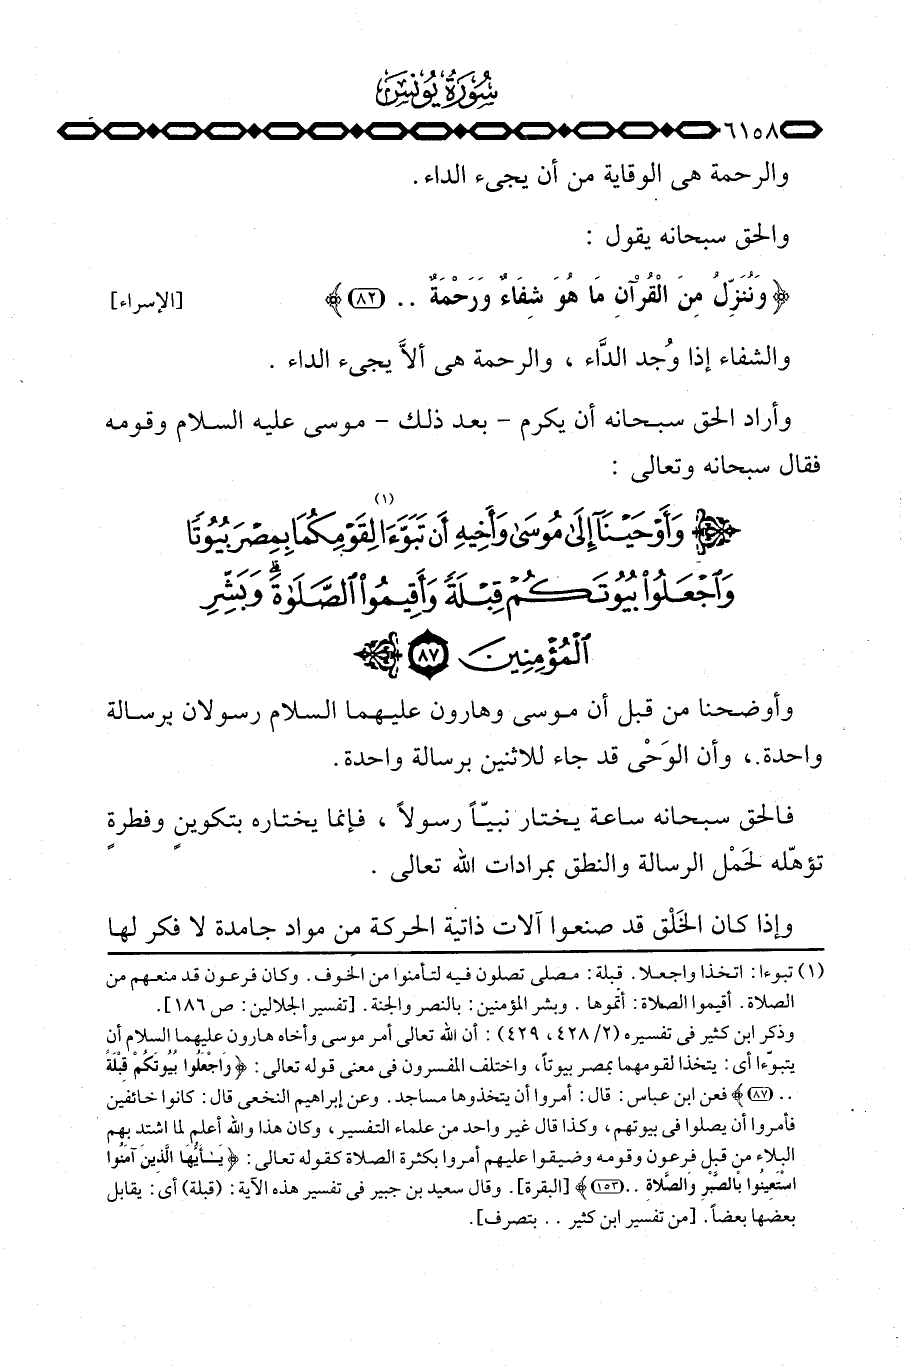 سُورَةُ يُونُسَ
٦١٥٨
والرحمة هى الوقاية من أن يجىء الداء .
والحق سبحانه يقول :
﴿ وَنُنَزِّلُ مِنَ الْقُرْآنِ مَا هُوَ شِفَاءٌ وَرَحْمَةٌ .. (٨٢) ﴾ [الإسراء]
والشفاء إذا وُجد الدَّاء ، والرحمة هى ألاَّ يجىء الداء .
وأراد الحق سبحانه أن يكرم - بعد ذلك - موسى عليه السلام وقومه
فقال سبحانه وتعالى :
﴿ وَأَوْحَيْنَآ إِلَىٰ مُوسَىٰ وَأَخِيهِ أَن تَبَوَّءَا (١) لِقَوْمِكُمَا بِمِصْرَ بُيُوتًا
وَٱجْعَلُوا۟ بُيُوتَكُمْ قِبْلَةً وَأَقِيمُوا۟ ٱلصَّلَوٰةَ ۗ وَبَشِّرِ
ٱلْمُؤْمِنِينَ (٨٧) ﴾
وأوضحنا من قبل أن موسى وهارون عليهما السلام رسولان برسالة
واحدة.، وأن الوَحْى قد جاء للاثنين برسالة واحدة.
فالحق سبحانه ساعة يختار نبيّاً رسولاً ، فإنما يختاره بتكوينٍ وفطرةٍ
تؤهّله لحَمْل الرسالة والنطق بمرادات الله تعالى .
وإذا كان الخَلْق قد صنعوا آلات ذاتية الحركة من مواد جامدة لا فكر لها
(١) تبوءا: اتخذا واجعلا. قبلة: مصلى تصلون فيه لتأمنوا من الخوف. وكان فرعون قد منعهم من
الصلاة. أقيموا الصلاة: أتموها. وبشر المؤمنين: بالنصر والجنة. [تفسير الجلالين: ص ١٨٦].
وذكر ابن كثير فى تفسيره (٢/ ٤٢٨، ٤٢٩) : أن الله تعالى أمر موسى وأخاه هارون عليهما السلام أن
يتبوّءا أى: يتخذا لقومهما بمصر بيوتاً، واختلف المفسرون فى معنى قوله تعالى: ﴿ وَاجْعَلُوا بُيُوتَكُمْ قِبْلَةً
.. (٨٧) ﴾ فعن ابن عباس: قال: أمروا أن يتخذوها مساجد. وعن إبراهيم النخعى قال: كانوا خائفين
فأمروا أن يصلوا فى بيوتهم، وكذا قال غير واحد من علماء التفسير، وكان هذا والله أعلم لما اشتد بهم
البلاء من قبل فرعون وقومه وضيقوا عليهم أمروا بكثرة الصلاة كقوله تعالى: ﴿ يَـٰأَيُّهَا الَّذِينَ آمَنُوا
اسْتَعِينُوا بِالصَّبْرِ وَالصَّلَاةِ .. (١٥٣) ﴾ [البقرة]. وقال سعيد بن جبير فى تفسير هذه الآية: (قبلة) أى: يقابل
بعضها بعضاً. [من تفسير ابن كثير .. بتصرف].